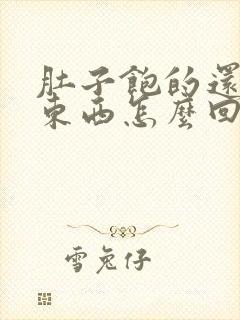 肚子飽的還
東西怎麼回
雪兔仔